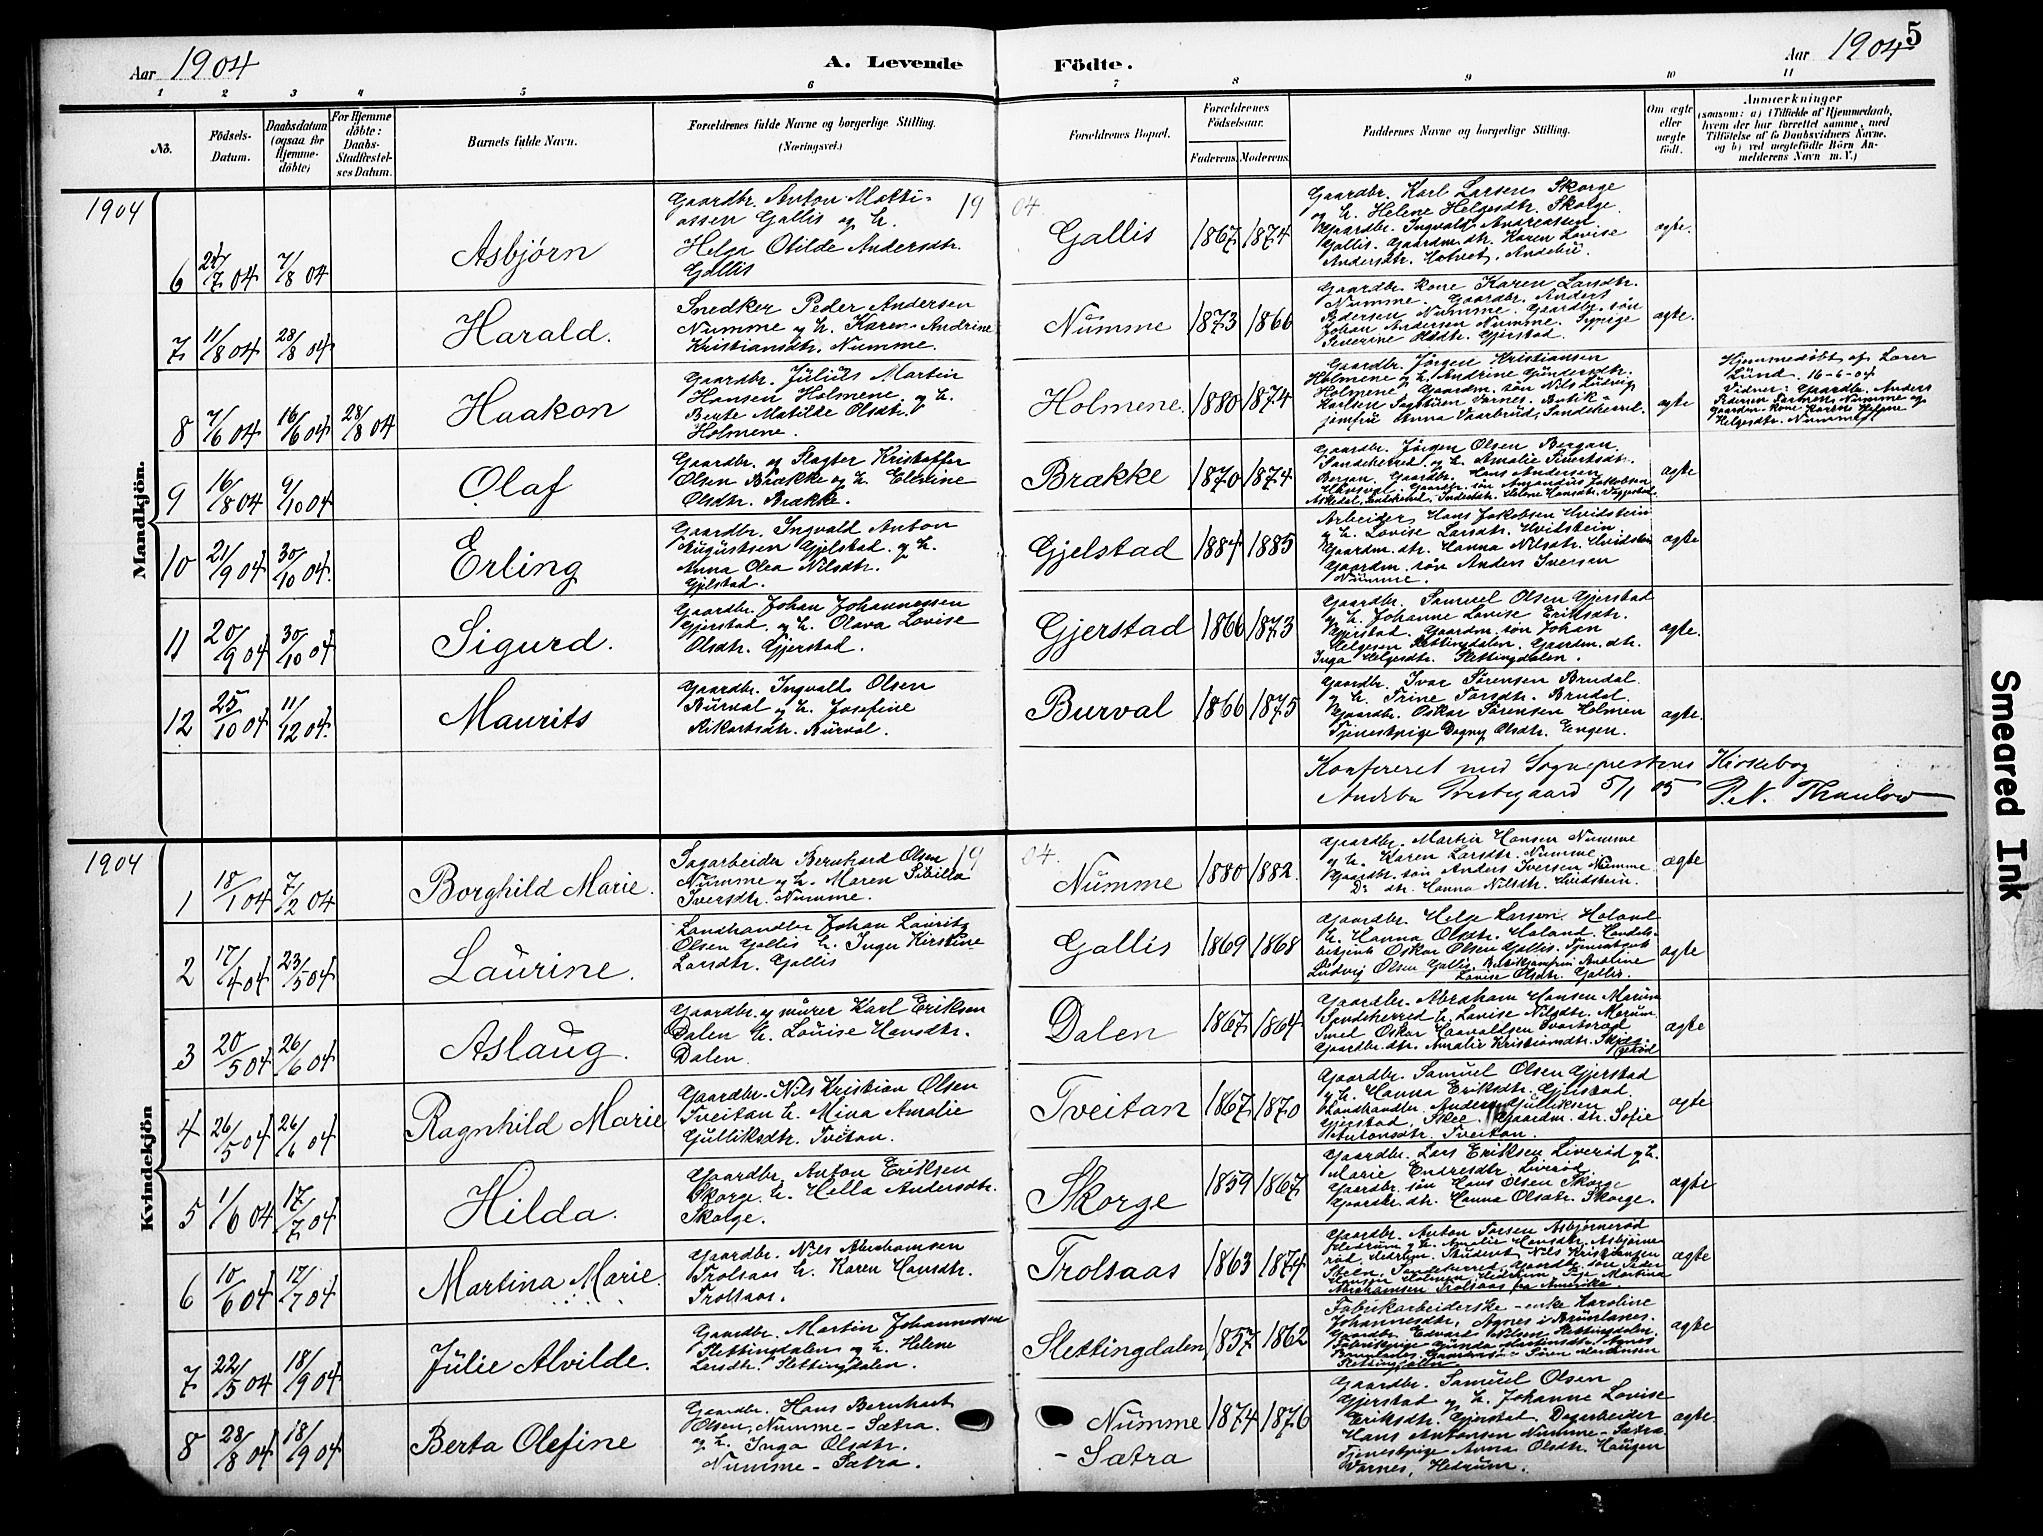 Aar 1904
A. Levende
Födte.
Aar 1904
5
1 2 3 4 5 6 7 8 9 10 11
No.
Födsels-
Datum.
Daabsdatum
(ogsaa for
Hjemme-
döbte)
For Hjemme
döbte:
Daabs-
Stadfæstel-
ses Datum.
Barnets fulde Navn.
Forældrenes fulde Navne og borgerlige Stilling.
(Næringsvei.)
Forældrenes Bopæl.
Forældrenes
Födselsaar.
Faderens. Moderens.
Faddernes Navne og borgerlige Stilling.
Om ægte
eller
uægte
födt.
Anmærkninger
(saasom: a) i Tilfælde af Hjemmedaab,
hvem der har forrettet samme, med
Tilföielse af to Daabsvidners Navne,
og b) ved uægtefödte Börn An-
melderens Navn m. V.)
Mandkjön.
1904
19
04.
6 24/7 04 7/8 04
Asbjørn
Gaardbr. Anton Matti-
assen Gallis og h.
Helga Otilde Andersdtr.
Gallis
Gallis
1867 1874
Gaardbr. Karl Larsen Skorge
og h. Helene Helgesdtr. Skorge.
Gaardbr. Ingvald Andreassen
Gallis. Gaardm. dtr. Karen Lovise
Andersdtr. Hotvet, Andebu.
ægte.
7 11/8 04 28/8 04
Harald.
Snedker Peder Andersen
Numme og h. Karen Andrine
Kristiansdtr. Numme.
Numme
1873 1866
Gaardbr. kone Karen Larsdtr.
Numme. Gaardbr. Anders
Pedersen Numme. Gaardbr. søn
Johan Andersen Numme. Sypige
Severine Olsdtr. Gjerstad.
ægte.
8 7/6 04 16/6 04 28/8 04
Haakon
Gaardbr. Julius Martin
Hansen Holmene og h.
Berte Matilde Olsdtr.
Holmene.
Holmene.
1880 1874
Gaardbr. Jørgen Kristiansen
Holmene og h. Andrine Gundersdtr.
Holmene. Gaardm. søn Nils Ludvig
Karlsen Sagstuen Varnes. Butik-
jomfru Anna Skarbrud, Sandeherred.
ægte
Hjemmedøbt af Lærer
Lund 16-6-04
Vidner: Gaardbr. Anders
Pedersen Sarmen, Numme og
Gaardm. kone Karen Helene
Helgesdtr. Numme
9 16/8 04 9/10 04
Olaf
Gaardbr. og Slagter Kristoffer
Olsen Brække og h. Elevine
Olsdtr. Brække.
Brække
1870 1874
Gaardbr. Jørgen Olsen Bergan
Sandeherred og h. Amalie Sivertsdtr.
Bergan. Gaardbr. Hans Andersen
ægte
10 21/9 04 30/10 04.
Erling
Gaardbr. Ingvald Anton
Augustsen Gjelstad og h.
Anna Olea Nilsdtr.
Gjelstad.
Gjelstad
1884 1885
Arbeider Hans Jakobsen Hvidstein
og h. Lovise Larsdtr. Hvidstein.
Gaardm. dtr. Hanna Nilsdtr. Hvidstein
Gaardm. søn Anders Iversen
Numme.
ægte
11 20/9 04 30/10 04
Sigurd.
Gaardbr. Johan Johannessen
Gjerstad og h. Olava Lovise
Olsdtr. Gjerstad.
Gjerstad
1866 1873
Gaardbr. Samuel Olsen Gjerstad
og h. Johanne Lovise Eriksdtr.
Gjerstad. Gaardm. søn Johan
Helgesen Slettingdalen. Gaardm. dtr.
Inga Helgesdtr. Slettingdalen.
ægte.
12 25/10 04 11/12 04.
Maurits
Gaardbr. Ingvald Olsen
Burval og h. Josefine
Rikartsdtr. Burval.
Burval
1866 1875
Gaardbr. Ivar Sørensen Brudal
og h. Trine Torsdtr. Brudal.
Gaardbr. Oskar Sørensen Holmen
Tjenestpige Dagny Olsdtr. Engen.
ægte.
Konfereret med Sogneprestens Kirkebog
Andebu Prestegaard 5/1 05 P.N. Thaulow
Kvindekjön
1904
19
04.
1 18/1 04 7/2 04
Borghild Marie.
Sagarbeider Bernhard Olsen
Numme og h. Maren Sibilla
Iversdtr. Numme.
Numme
1880 1882.
Gaardbr. Martin Hansen Numme
og h. Karen Larsdtr. Numme
Gaardbr. søn Anders Iversen Numme
Do dtr. Hanna Nilsdtr. Hvidstein.
ægte
2 17/4 04 23/5 04
Laurine.
Landhandler Johan Lauritz
Olsen Gallis h. Inga Kirstine
Larsdtr. Gallis
Gallis
1869 1868
Gaardbr. Helge Larsen Holand
h. Hanna Olsdtr. Holand. Handels-
betjent Oskar Olsen Gallis.
Ludvig Olsen Gallis. Butikjomfru Andrine
Lovise Olsdtr. Gallis.
ægte
3 20/5 04 26/6 04
Aslaug.
Gaardbr. og murer Karl Eriksen
Dalen h. Louise Hansdtr.
Dalen.
Dalen
1867 1864
Gaardbr. Abraham Hansen Marum
Sandeherred h. Lovise Nilsdtr. Marum.
Smed Oskar Haavaldsen Svartsrød
Gaardbr. dtr. Amalie Kristiansdtr.
ægte
4 26/5 04 26/6 04
Ragnhild Marie
Gaardbr. Nils Kristian Olsen
Tveitan h. Mina Amalie
Gulliksdtr. Tveitan.
Tveitan
1867 1870
Gaardbr. Samuel Olsen Gjerstad
og h. Hanna Eriksdtr. Gjerstad
Landhandler Anders Gulliksen
Gjerstad, Skee. Gaardm. dtr. Sofie
Antonsdtr. Tveitan.
ægte
5 1/6 04 17/7 04
Hilda.
Gaardbr. Anton Eriksen
Skorge. h. Hella Andersdtr.
Skorge.
Skorge
1859 1867
Gaardbr. Lars Eriksen Liverød og h.
Marie Endresdtr. Liverød.
Gaardbr. søn Hans Olsen Skorge
Gaardbr. dtr. Hanna Olsdtr. Skorge.
ægte
6 10/6 04 17/7 04
Martina Marie.
Gaardbr. Nils Abrahamsen
Trolsaas h. Karen Hansdtr.
Trolsaas.
Trolsaas
1863 1874
Gaardbr. Anton Torsen Asbjørnrød
Hedrum og h. Amalie Hansdtr. Asbjørn-
rød, Hedrum. Student Nils Kristiansen
Stein, Sandeherred, Gaardbr. søn Peder
Hansen Holmen, Hedrum. Pige Martina
Abrahamsen Trolsaas fra Amerika
ægte
7 22/5 04 18/9 04
Julie Alvilde.
Gaardbr. Martin Johannessen
Slettingdalen og h. Helene
Larsdtr. Slettingdalen.
Slettingdalen
1857 1862
Fabrikarbeiderske - enke Karoline
Johannesdtr, Agnes i Brunlanes.
Gaardbr. Edvard Nilsen Slettingdalen.
Fabrikpige Gunda Martinsdtr. Agnes
Brunlanes. Søren Martinsen
Slettingdalen
ægte
8 28/8 04 18/9 04
Berta Olefine
Gaardbr. Hans Bernhart
Olsen, Numme-Sætra.
og h. Inga Olsdtr.
Numme - Sætra.
Numme
- Sætra
1874 1876
Gaardbr. Samuel Olsen
Gjerstad og h. Johanne Lovise
Eriksdtr. Gjerstad. Dagarbeider
Hans Antonsen Numme-Sætra
Tjenestpige Anna Olsdtr. Haugen
Varnes, Hedrum.
ægte.
Smeared Ink